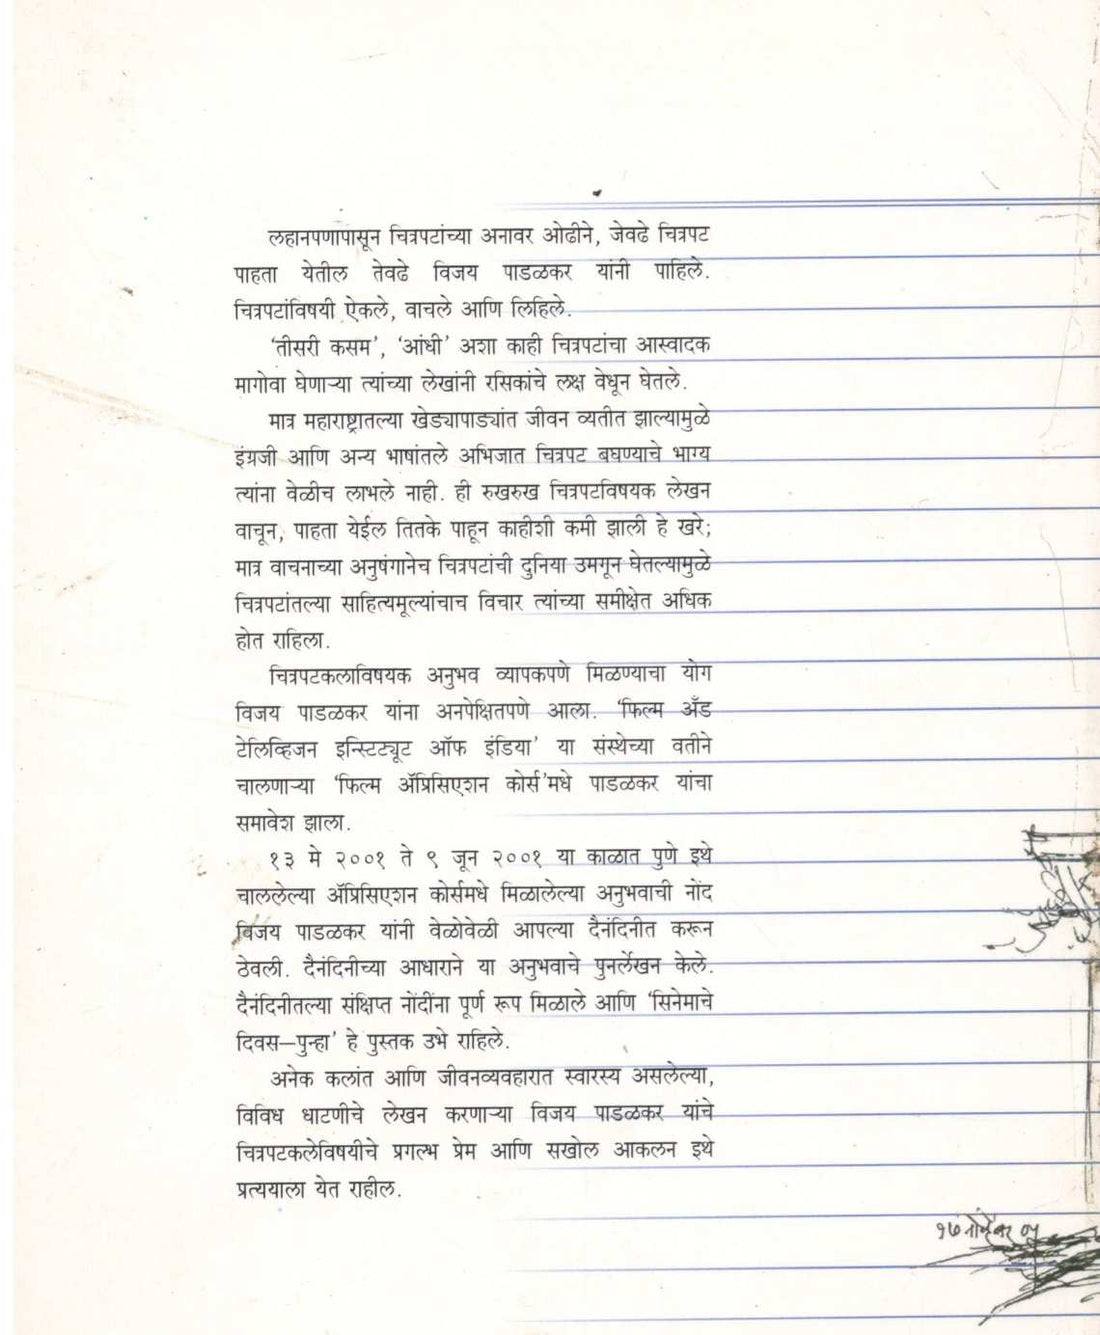 लहानपणापासून चित्रपटांच्या अनावर ओढीने, जेवढे चित्रपट
पाहता येतील तेवढे विजय पाडळकर यांनी पाहिले.
चित्रपटांविषयी ऐकले, वाचले आणि लिहिले.
‘तीसरी कसम’, ‘आंधी’ अशा काही चित्रपटांचा आस्वादक
मागोवा घेणाऱ्या त्यांच्या लेखांनी रसिकांचे लक्ष वेधून घेतले.
मात्र महाराष्ट्रातल्या खेड्यापाड्यांत जीवन व्यतीत झाल्यामुळे
इंग्रजी आणि अन्य भाषांतले अभिजात चित्रपट बघण्याचे भाग्य
त्यांना वेळीच लाभले नाही. ही रुखरुख चित्रपटविषयक लेखन
वाचून, पाहता येईल तितके पाहून काहीशी कमी झाली हे खरे;
मात्र वाचनाच्या अनुषंगानेच चित्रपटांची दुनिया उमगून घेतल्यामुळे
चित्रपटांतल्या साहित्यमूल्यांचाच विचार त्यांच्या समीक्षेत अधिक
होत राहिला.
चित्रपटकलाविषयक अनुभव व्यापकपणे मिळण्याचा योग
विजय पाडळकर यांना अनपेक्षितपणे आला. ‘फिल्म अँड
टेलिव्हिजन इन्स्टिट्यूट ऑफ इंडिया’ या संस्थेच्या वतीने
चालणाऱ्या ‘फिल्म ॲप्रिसिएशन कोर्स’मधे पाडळकर यांचा
समावेश झाला.
१३ मे २००१ ते ९ जून २००१ या काळात पुणे इथे
चाललेल्या ॲप्रिसिएशन कोर्समधे मिळालेल्या अनुभवाची नोंद
विजय पाडळकर यांनी वेळोवेळी आपल्या दैनंदिनीत करून
ठेवली. दैनंदिनीच्या आधाराने या अनुभवाचे पुनर्लेखन केले.
दैनंदिनीतल्या संक्षिप्त नोंदींना पूर्ण रूप मिळाले आणि ‘सिनेमाचे
दिवस—पुन्हा’ हे पुस्तक उभे राहिले.
अनेक कलांत आणि जीवनव्यवहारात स्वारस्य असलेल्या,
विविध धाटणीचे लेखन करणाऱ्या विजय पाडळकर यांचे
चित्रपटकलेविषयीचे प्रगल्भ प्रेम आणि सखोल आकलन इथे
प्रत्ययाला येत राहील.